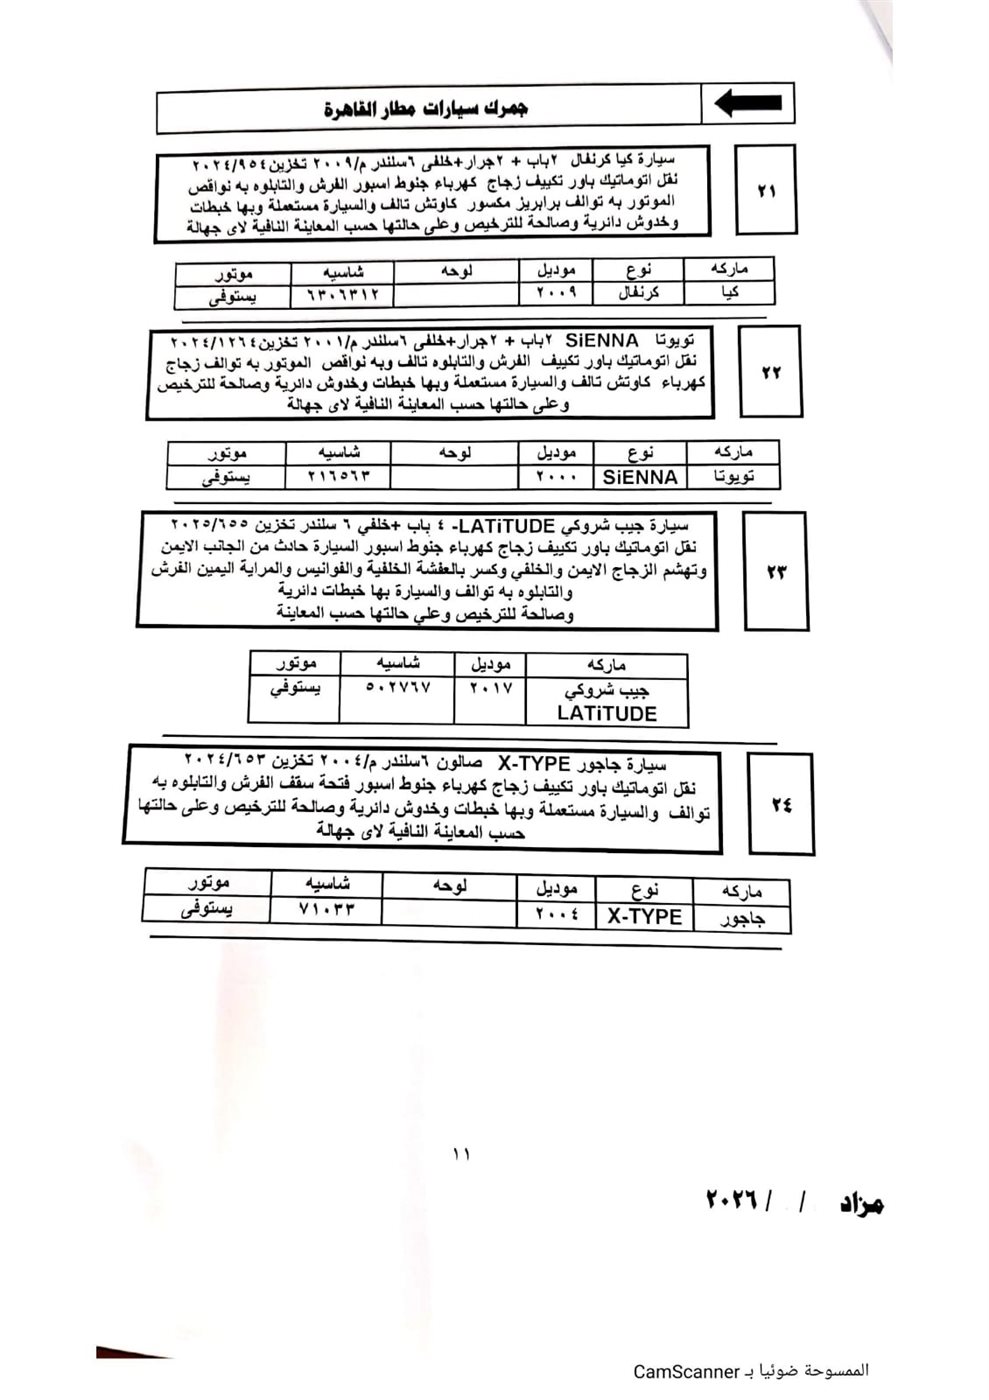 جمرك سيارات مطار القاهرة
٢١
سيارة كيا كرنفال ٢باب + ٢جرار+خلفى ٦سلندر م/٢٠٠٩ تخزين ٢٠٢٤/٩٥٤
نقل اتوماتيك باور تكييف زجاج كهرباء جنوط اسبور الفرش والتابلوه به نواقص
الموتور به توالف برابريز مكسور كاوتش تالف والسيارة مستعملة وبها خبطات
وخدوش دائرية وصالحة للترخيص وعلى حالتها حسب المعاينة النافية لاى جهالة
ماركه نوع موديل لوحه شاسيه موتور
كيا كرنفال ٢٠٠٩ ٦٣٠٦٣١٢ يستوفي
٢٢
تويوتا SiENNA ٢باب + ٢جرار+خلفى ٦سلندر م/٢٠٠١ تخزين ٢٠٢٤/١٢٦٤
نقل اتوماتيك باور تكييف الفرش والتابلوه تالف وبه نواقص الموتور به توالف زجاج
كهرباء كاوتش تالف والسيارة مستعملة وبها خبطات وخدوش دائرية وصالحة للترخيص
وعلى حالتها حسب المعاينة النافية لاى جهالة
ماركه نوع موديل لوحه شاسيه موتور
تويوتا SiENNA ٢٠٠٠ ٢١٦٥٦٣ يستوفي
٢٣
سيارة جيب شروكي LATiTUDE- ٤ باب +خلفي ٦ سلندر تخزين ٢٠٢٥/٦٥٥
نقل اتوماتيك باور تكييف زجاج كهرباء جنوط اسبور السيارة حادث من الجانب الايمن
وتهشم الزجاج الايمن والخلفي وكسر بالعفشة الخلفية والفوانيس والمراية اليمين الفرش
والتابلوه به توالف والسيارة بها خبطات دائرية
وصالحة للترخيص وعلي حالتها حسب المعاينة
ماركه موديل شاسيه موتور
جيب شروكي ٢٠١٧ ٥٠٢٧٦٧ يستوفي
LATiTUDE
٢٤
سيارة جاجور X-TYPE صالون ٦سلندر م/٢٠٠٤ تخزين ٢٠٢٤/٦٥٣
نقل اتوماتيك باور تكييف زجاج كهرباء جنوط اسبور فتحة سقف الفرش والتابلوه به
توالف والسيارة مستعملة وبها خبطات وخدوش دائرية وصالحة للترخيص وعلى حالتها
حسب المعاينة النافية لاى جهالة
ماركه نوع موديل لوحه شاسيه موتور
جاجور X-TYPE ٢٠٠٤ ٧١٠٣٣ يستوفى
١١
مزاد / / ٢٠٢٦
الممسوحة ضوئيا بـ CamScanner